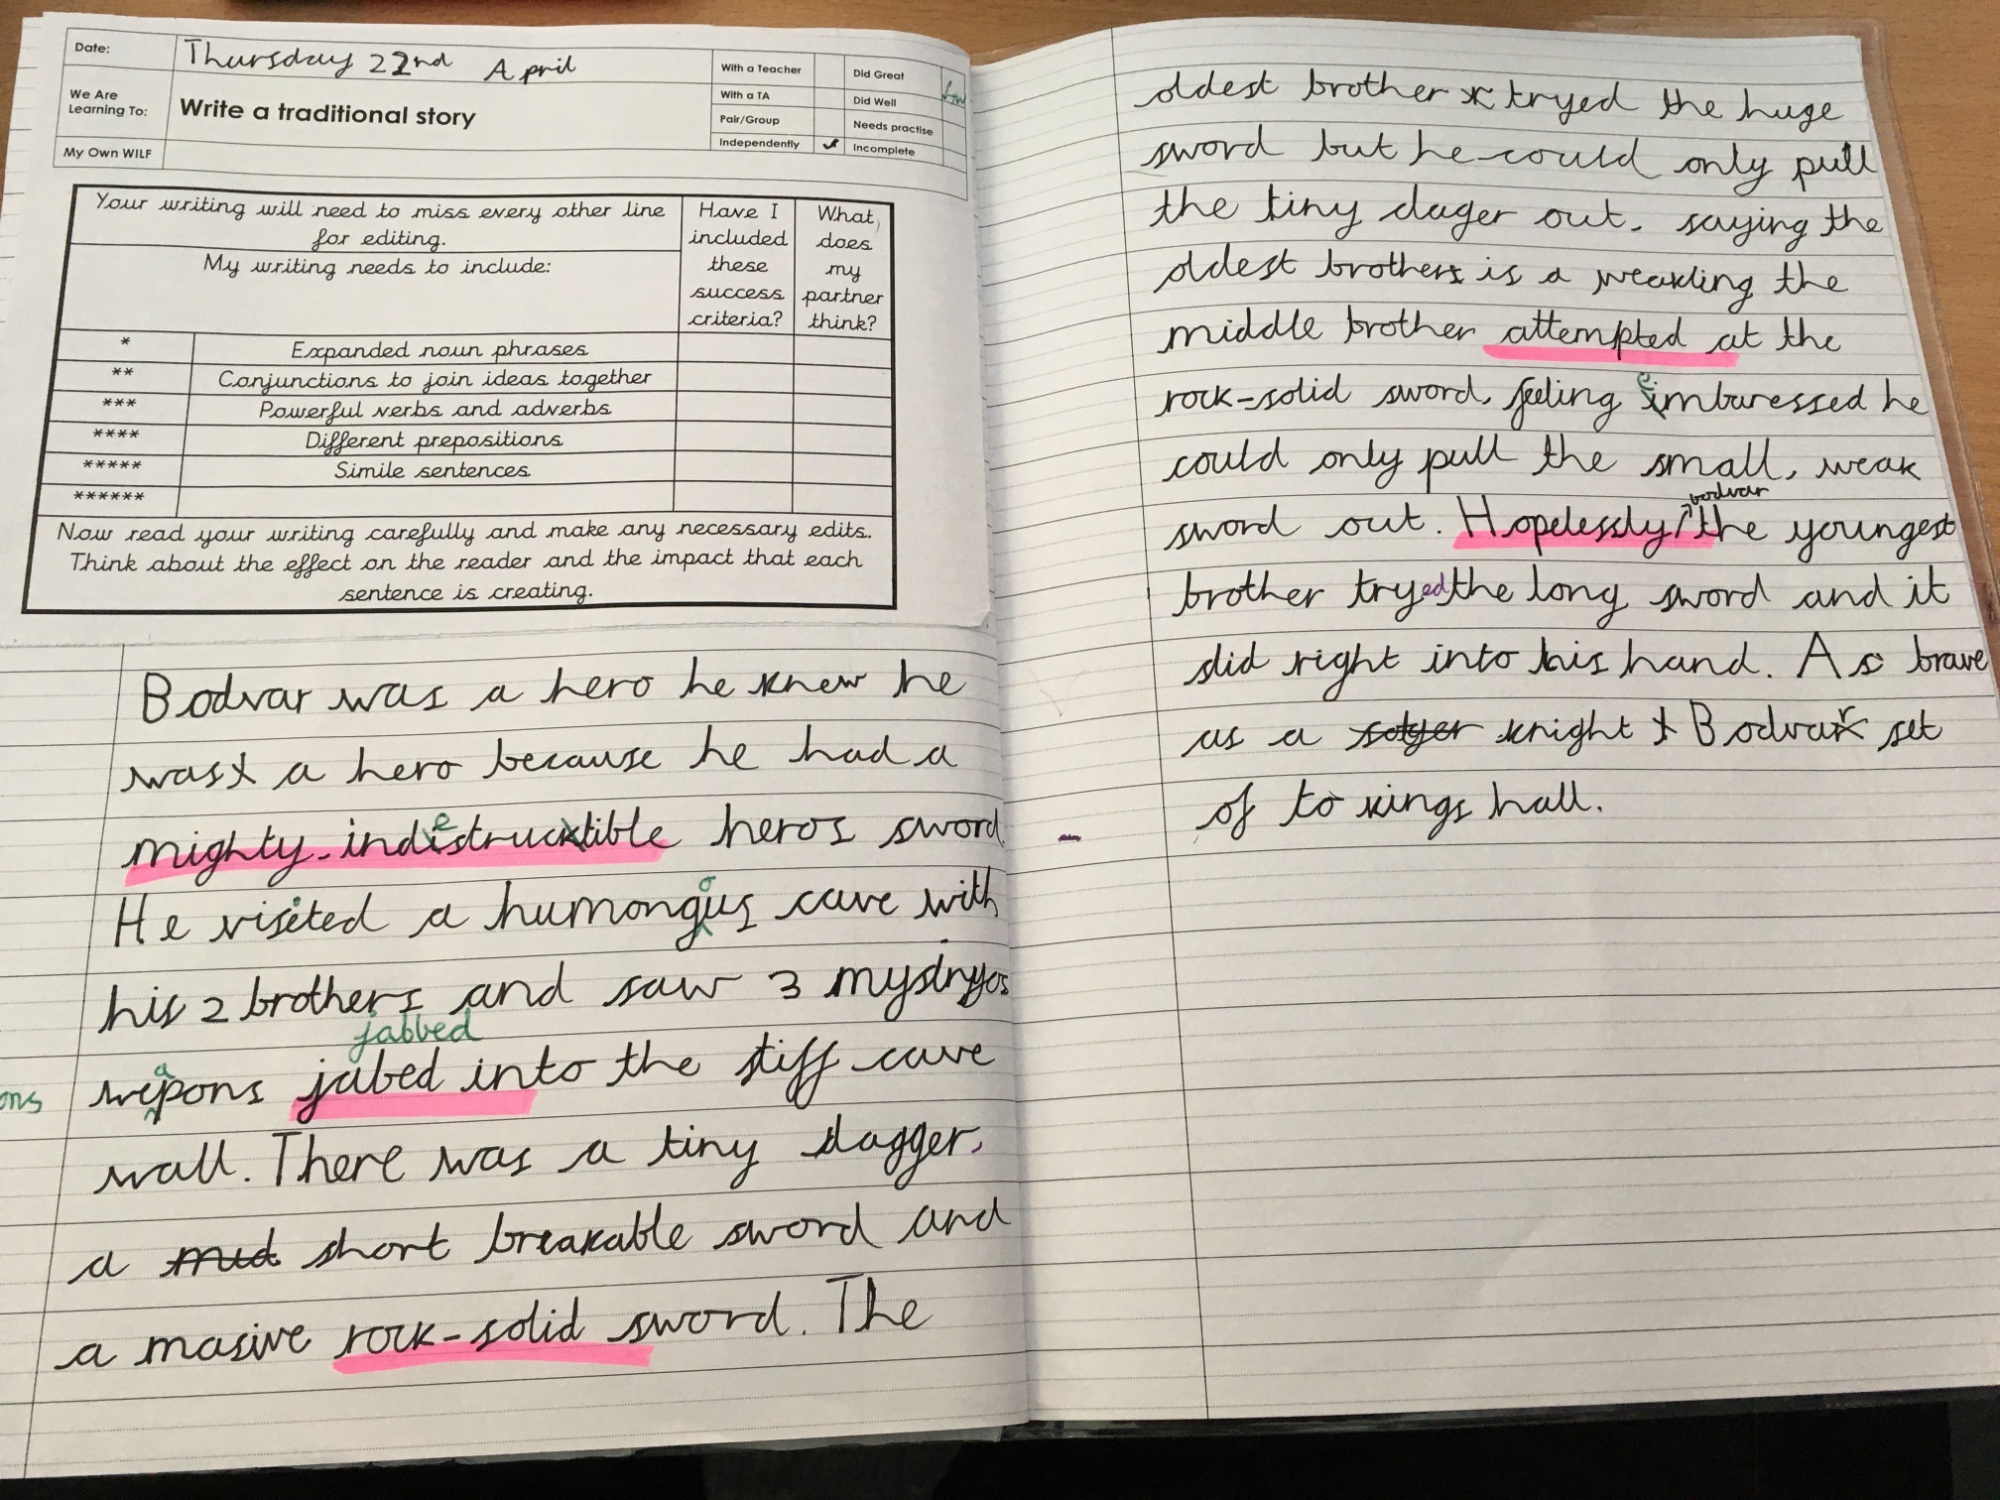 Date:
Thursday 22nd April
We Are
Learning To:
Write a traditional story
My Own WILF
With a Teacher
Did Great
With a TA
Did Well
Pair/Group
Needs practise
Independently
Incomplete
Your writing will need to miss every other line
for editing.
My writing needs to include:
Have I
included
these
success
criteria?
What
does
my
partner
think?
* Expanded noun phrases
** Conjunctions to join ideas together
*** Powerful verbs and adverbs
**** Different prepositions
***** Simile sentences
******
Now read your writing carefully and make any necessary edits.
Think about the effect on the reader and the impact that each
sentence is creating.
Bodvar was a hero he knew he
was a hero because he had a
mighty-indestructible heros sword
He visited a humongous cave with
his 2 brothers and saw 3
jabbed
ons
weapons jabed into the stiff cave
wall. There was a tiny dagger,
a mud short breakable sword and
a masive rock-solid sword. The
oldest brother tryed the huge
sword but he could only pull
the tiny dager out. saying the
oldest brother is a weakling the
middle brother attempted at the
rock-solid sword, feeling embaressed he
could only pull the small, weak
bodvar
sword out. Hopelessly the youngest
brother tryed the long sword and it
slid right into his hand. As brave
as a knight Bodvar set
of to kings hall.